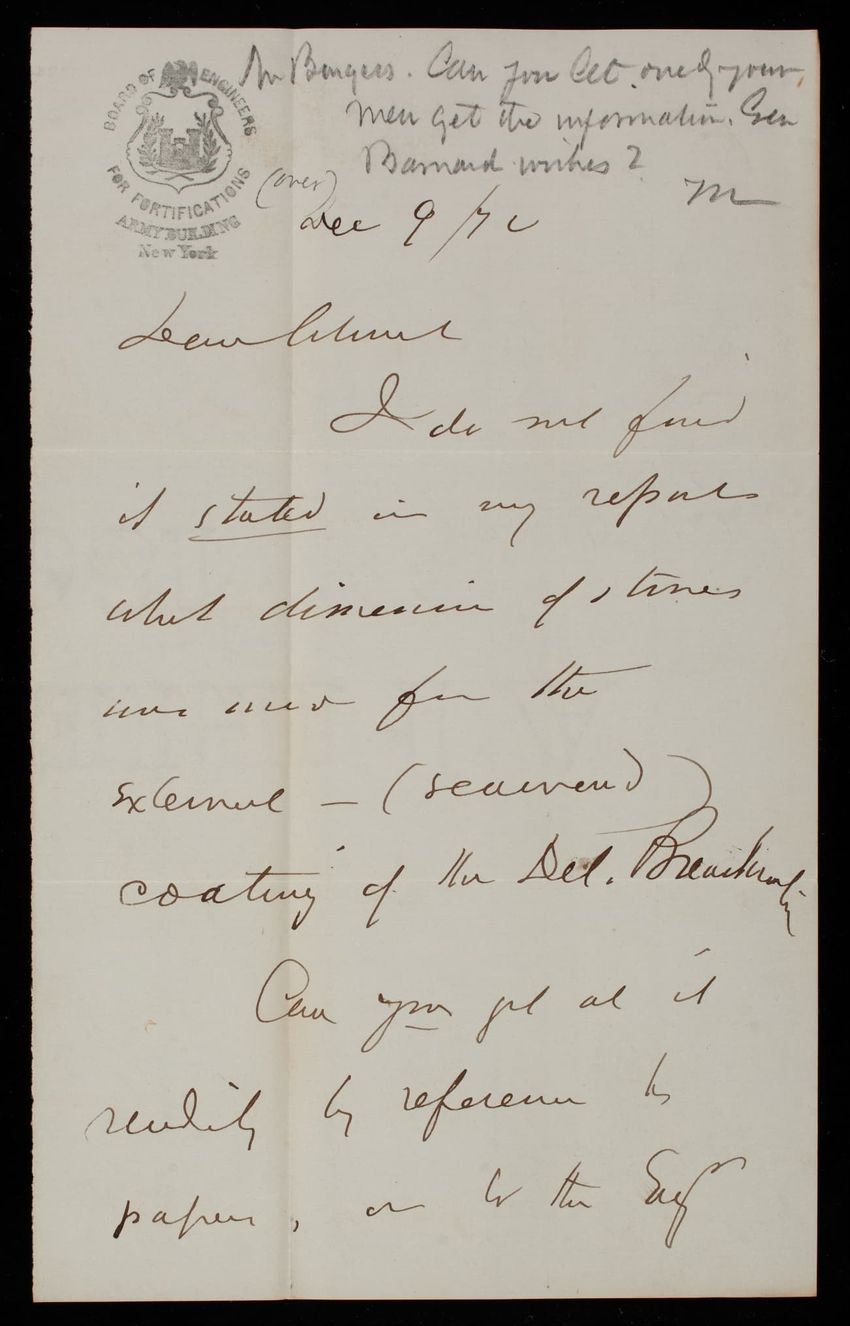 BOARD OF ENGINEERS
FOR FORTIFICATIONS
ARMY BUILDING
New York
Mr Burgess. Can you let one of your
men get the information Gen
Barnard wishes?
M
(over)
Dec 9/72
Dear Colonel
I do not find
it stated in my reports
what dimension of stones
was used for the
external - (seaward)
coating of the Del. Breakwater
Can you get at it
readily by reference to
papers, or to the Engr